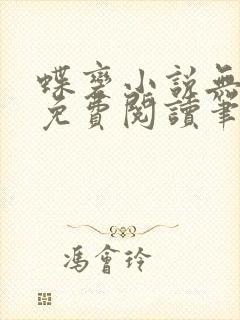 蝶變小說無
免費閱讀筆
馮會玲